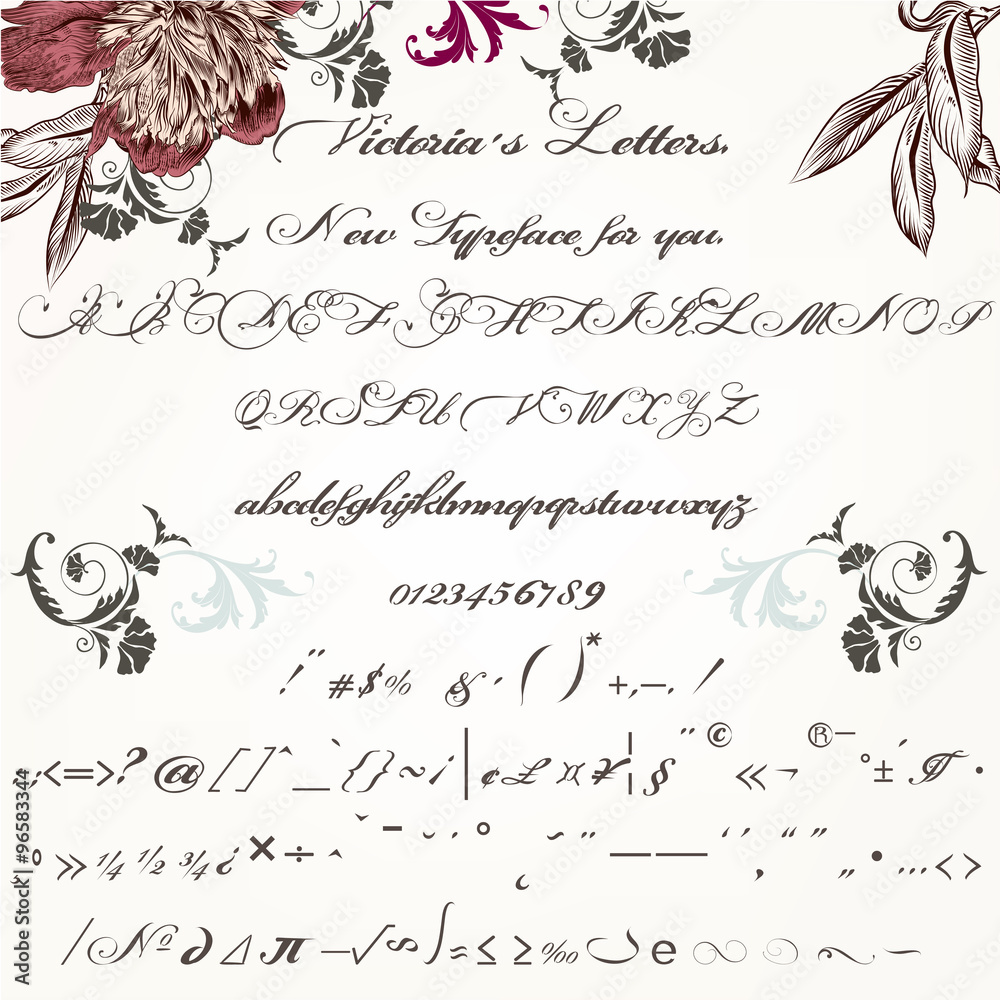 Victoria's Letters.
New Typeface for you.
A B C D E F G H I J K L M N O P
Q R S T U V W X Y Z
abcdefghijklmnopqrstuvwxyz
0123456789
! " # $ % & ' ( ) * + , – . /
: < = > ? @ [ ] ^ _ ` { } ~ ¡ | ¢ £ ¤ ¥ ¦ § ¨ © « ¬ ® ¯ ° ± ´ ¶ ·
º » ¼ ½ ¾ ¿ × ÷ ˆ ˇ ˉ ˘ ˙ ˚ ˛ ˜ ¨ – — ‘ ’ ‚ “ ” „ • … ‹ ›
/ № ∂ ∆ π − √ ∽ ∫ ≈ ≤ ≥ ‰ e ∞ ∞ ~ ~
Adobe Stock | #96583344